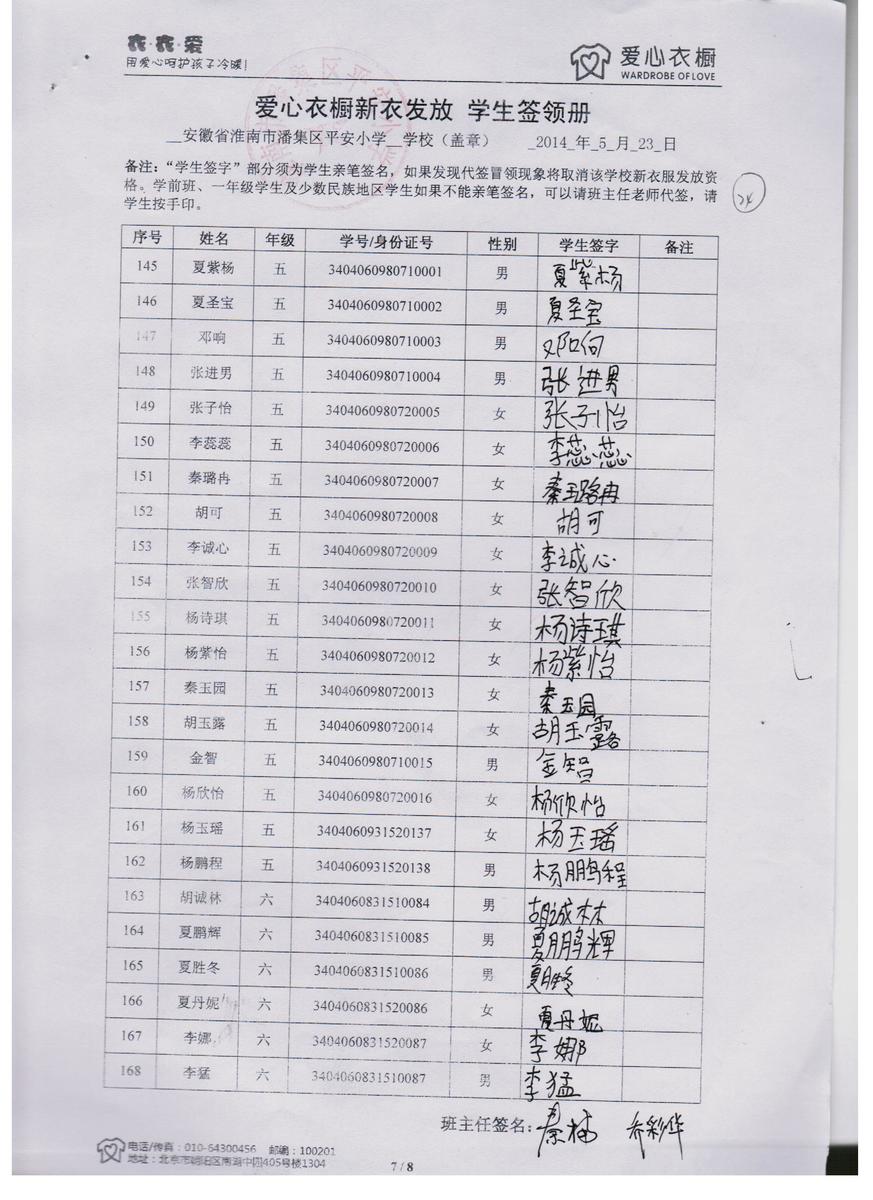 衣·衣·爱
用爱心呵护孩子冷暖!
爱心衣橱
WARDROBE OF LOVE
爱心衣橱新衣发放 学生签领册
__安徽省淮南市潘集区平安小学__学校（盖章） _2014_年_5_月_23_日
备注：“学生签字”部分须为学生亲笔签名，如果发现代签冒领现象将取消该学校新衣服发放资
格。学前班、一年级学生及少数民族地区学生如果不能亲笔签名，可以请班主任老师代签，请
学生按手印。
24
序号 姓名 年级 学号/身份证号 性别 学生签字 备注
145 夏紫杨 五 3404060980710001 男 夏紫杨
146 夏圣宝 五 3404060980710002 男 夏圣宝
147 邓响 五 3404060980710003 男 邓响
148 张进男 五 3404060980710004 男 张进男
149 张子怡 五 3404060980720005 女 张子怡
150 李蕊蕊 五 3404060980720006 女 李蕊蕊
151 秦璐冉 五 3404060980720007 女 秦璐冉
152 胡可 五 3404060980720008 女 胡可
153 李诚心 五 3404060980720009 女 李诚心
154 张智欣 五 3404060980720010 女 张智欣
155 杨诗琪 五 3404060980720011 女 杨诗琪
156 杨紫怡 五 3404060980720012 女 杨紫怡
157 秦玉园 五 3404060980720013 女 秦玉园
158 胡玉露 五 3404060980720014 女 胡玉露
159 金智 五 3404060980710015 男 金智
160 杨欣怡 五 3404060980720016 女 杨欣怡
161 杨玉瑶 五 3404060931520137 女 杨玉瑶
162 杨鹏程 五 3404060931520138 男 杨鹏程
163 胡诚林 六 3404060831510084 男 胡诚林
164 夏鹏辉 六 3404060831510085 男 夏鹏辉
165 夏胜冬 六 3404060831510086 男 夏胜冬
166 夏丹妮 六 3404060831520086 女 夏丹妮
167 李娜 六 3404060831520087 女 李娜
168 李猛 六 3404060831510087 男 李猛
班主任签名：秦楠 乔彩华
电话/传真：010-64300456 邮编：100201
地址：北京市朝阳区南湖中园405号楼1304
7 / 8